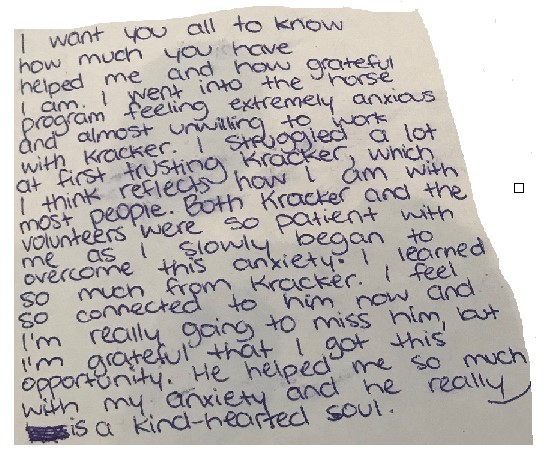 I want you all to know
how much you have
helped me and how grateful
I am. I went into the horse
program feeling extremely anxious
and almost unwilling to work
with Kracker. I struggled a lot
at first trusting Kracker, which
I think reflects how I am with
most people. Both Kracker and the
volunteers were so patient with
me as I slowly began to
overcome this anxiety. I learned
so much from Kracker. I feel
so connected to him now and
I'm really going to miss him, but
I'm grateful that I got this
opportunity. He helped me so much
with my anxiety and he really
is a kind-hearted soul.